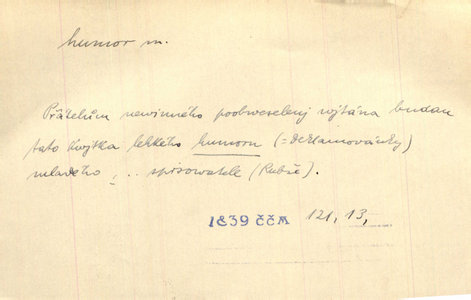 humor m.
Přátelům newinného poobweselenj wjtána budau
tato kwjtka lehkého humoru (=deklamowánky)
mladého , .. spisowatele (Rubše).
1839 ČČM 121, 13,